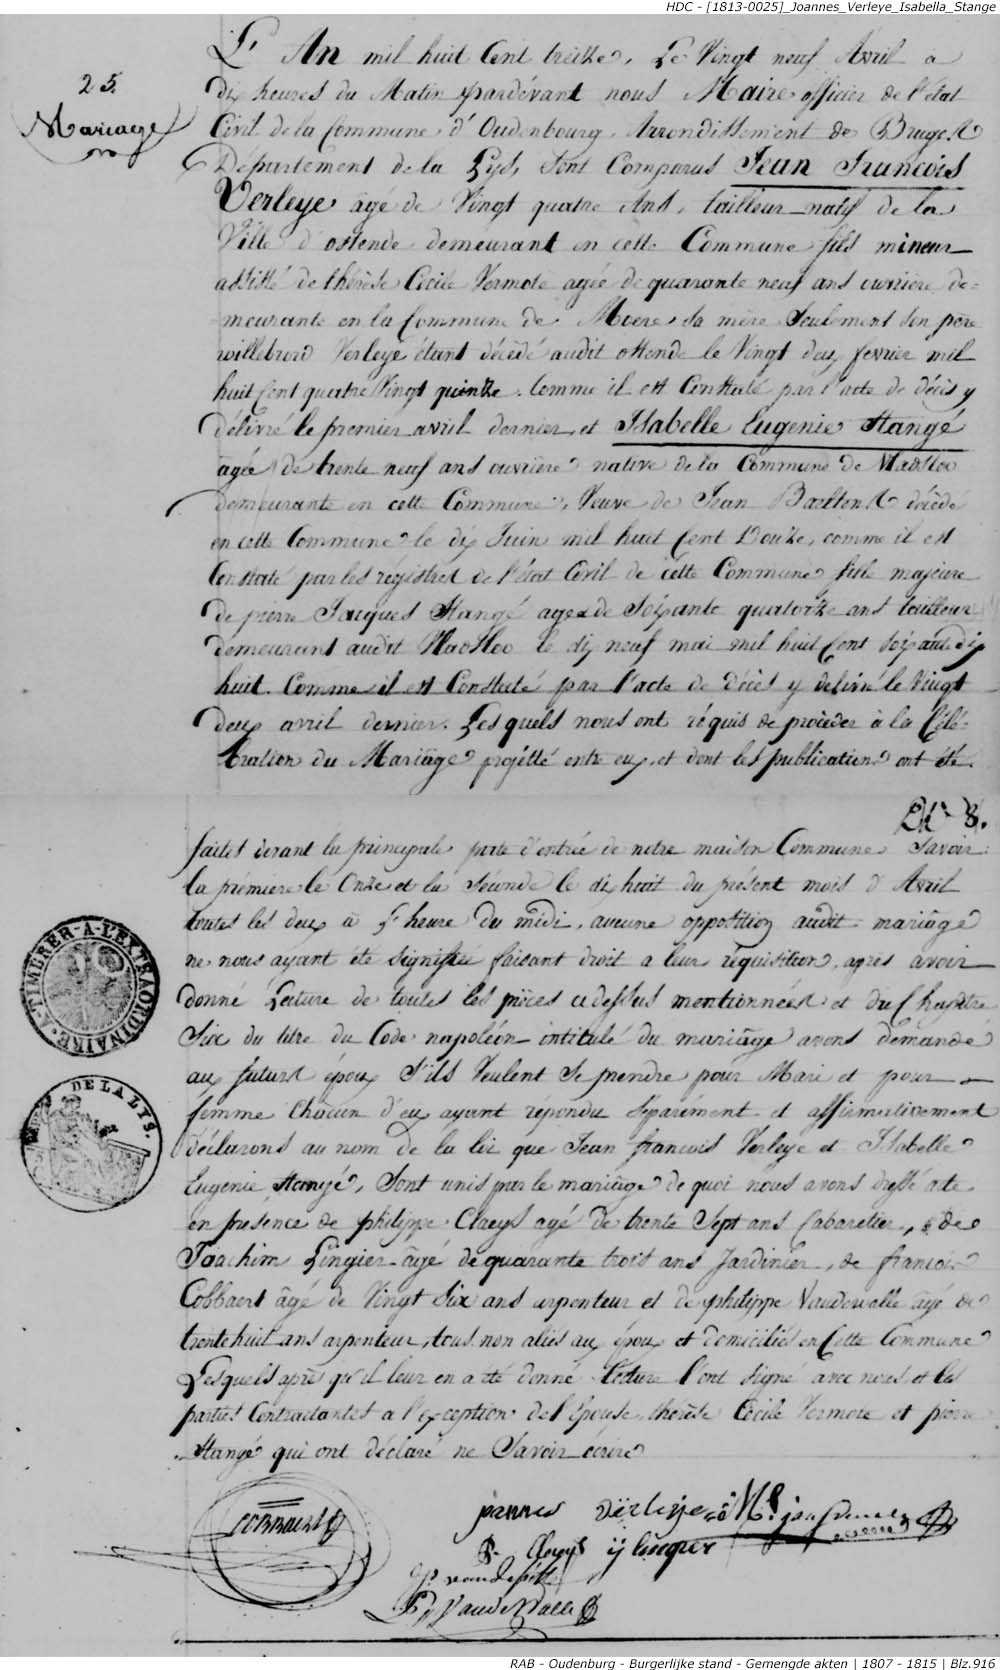 HDC - [1813-0025]_Joannes_Verleye_Isabella_Stange
25.
Mariage
L'An mil huit Cent treize, Le Vingt neuf Avril a
dix heures du Matin pardevant nous Maire officier de l'état
Civil de la Commune d'Oudenbourg Arrondissement de Bruges
Département de la Lys, sont Comparus Jean Francois
Verleye âgé de Vingt quatre Ans, tailleur natif de la
Ville d'ostende demeurant en cette Commune fils mineur
assisté de thérèse Cécile Vermote agée de quarante neuf ans ouvrière de=
=meurante en la Commune de Moere sa mère seulement son père
willebrord Verleye étant décédé audit ostende le Vingt deux fevrier mil
huit Cent quatre Vingt quinze. Comme il est Constaté par l'acte de décès y
délivré le premier avril dernier, et Isabelle Eugenie Stangé
agée de trente neuf ans ouvriere native de la Commune de
demeurante en cette Commune, Veuve de Jean décédé
en cette Commune le dix Juin mil huit Cent Douze, comme il est
Constaté par les régistres de l'état Civil de cette Commune fille majeure
de pierre Jacques Stangé age de Soixante quatorze ans tailleur
demeurant audit le dix neuf mai mil huit Cent soixante dix
huit. Comme il est Constaté par l'acte de décès y delivré le Vingt
deux avril dernier. Lesquels nous ont réquis de procéder à la Célé=
bration du Mariage projetté entre eux et dont les publications ont été
8.
faites devant la principale porte d'entrée de notre maison Commune Savoir:
la premiere le Onze et la Séconde le dix huit du présent mois d'Avril
toutes les deux à L'heure du midi, aucune opposition audit mariage
ne nous ayant été signifiée faisant droit a leur réquisition, apres avoir
donné Lecture de toutes les pièces ci dessus mentionnées et du Chapitre
Six du titre du Code napoléon intitulé du mariage avons démandé
aux futurs époux s'ils Veulent se prendre pour Mari et pour
femme Chacun d'eux ayant répondu séparément et affirmativement
déclarons au nom de la loi que Jean françois Verleye et Isabelle
Eugenie Stangé, Sont unis par le mariage de quoi nous avons dressé acte
en presence de philippe Claeys agé de trente Sept ans Cabaretier, de
Joachim Lingier âgé de quarante trois ans Jardinier, de francois
Cobbaert âgé de Vingt Six ans arpenteur et de philippe Vandewalle âgé de
trente huit ans arpenteur, tous non aliés aux époux et domiciliés en Cette Commune
Lesquels après qu'il leur en a été donné lecture l'ont signé avec nous et les
parties Contractantes a l'exception de l'épouse, thérèse Cécile Vermote et pierre
Stangé qui ont déclaré ne Savoir écrire
TIMBRER-A-L'EXTRAORDINAIRE
DE LA LYS.
COBBAERT
joannes Verleye
P. Claeys ij lingier
P. d. Vande Walle
RAB - Oudenburg - Burgerlijke stand - Gemengde akten | 1807 - 1815 | Blz.916